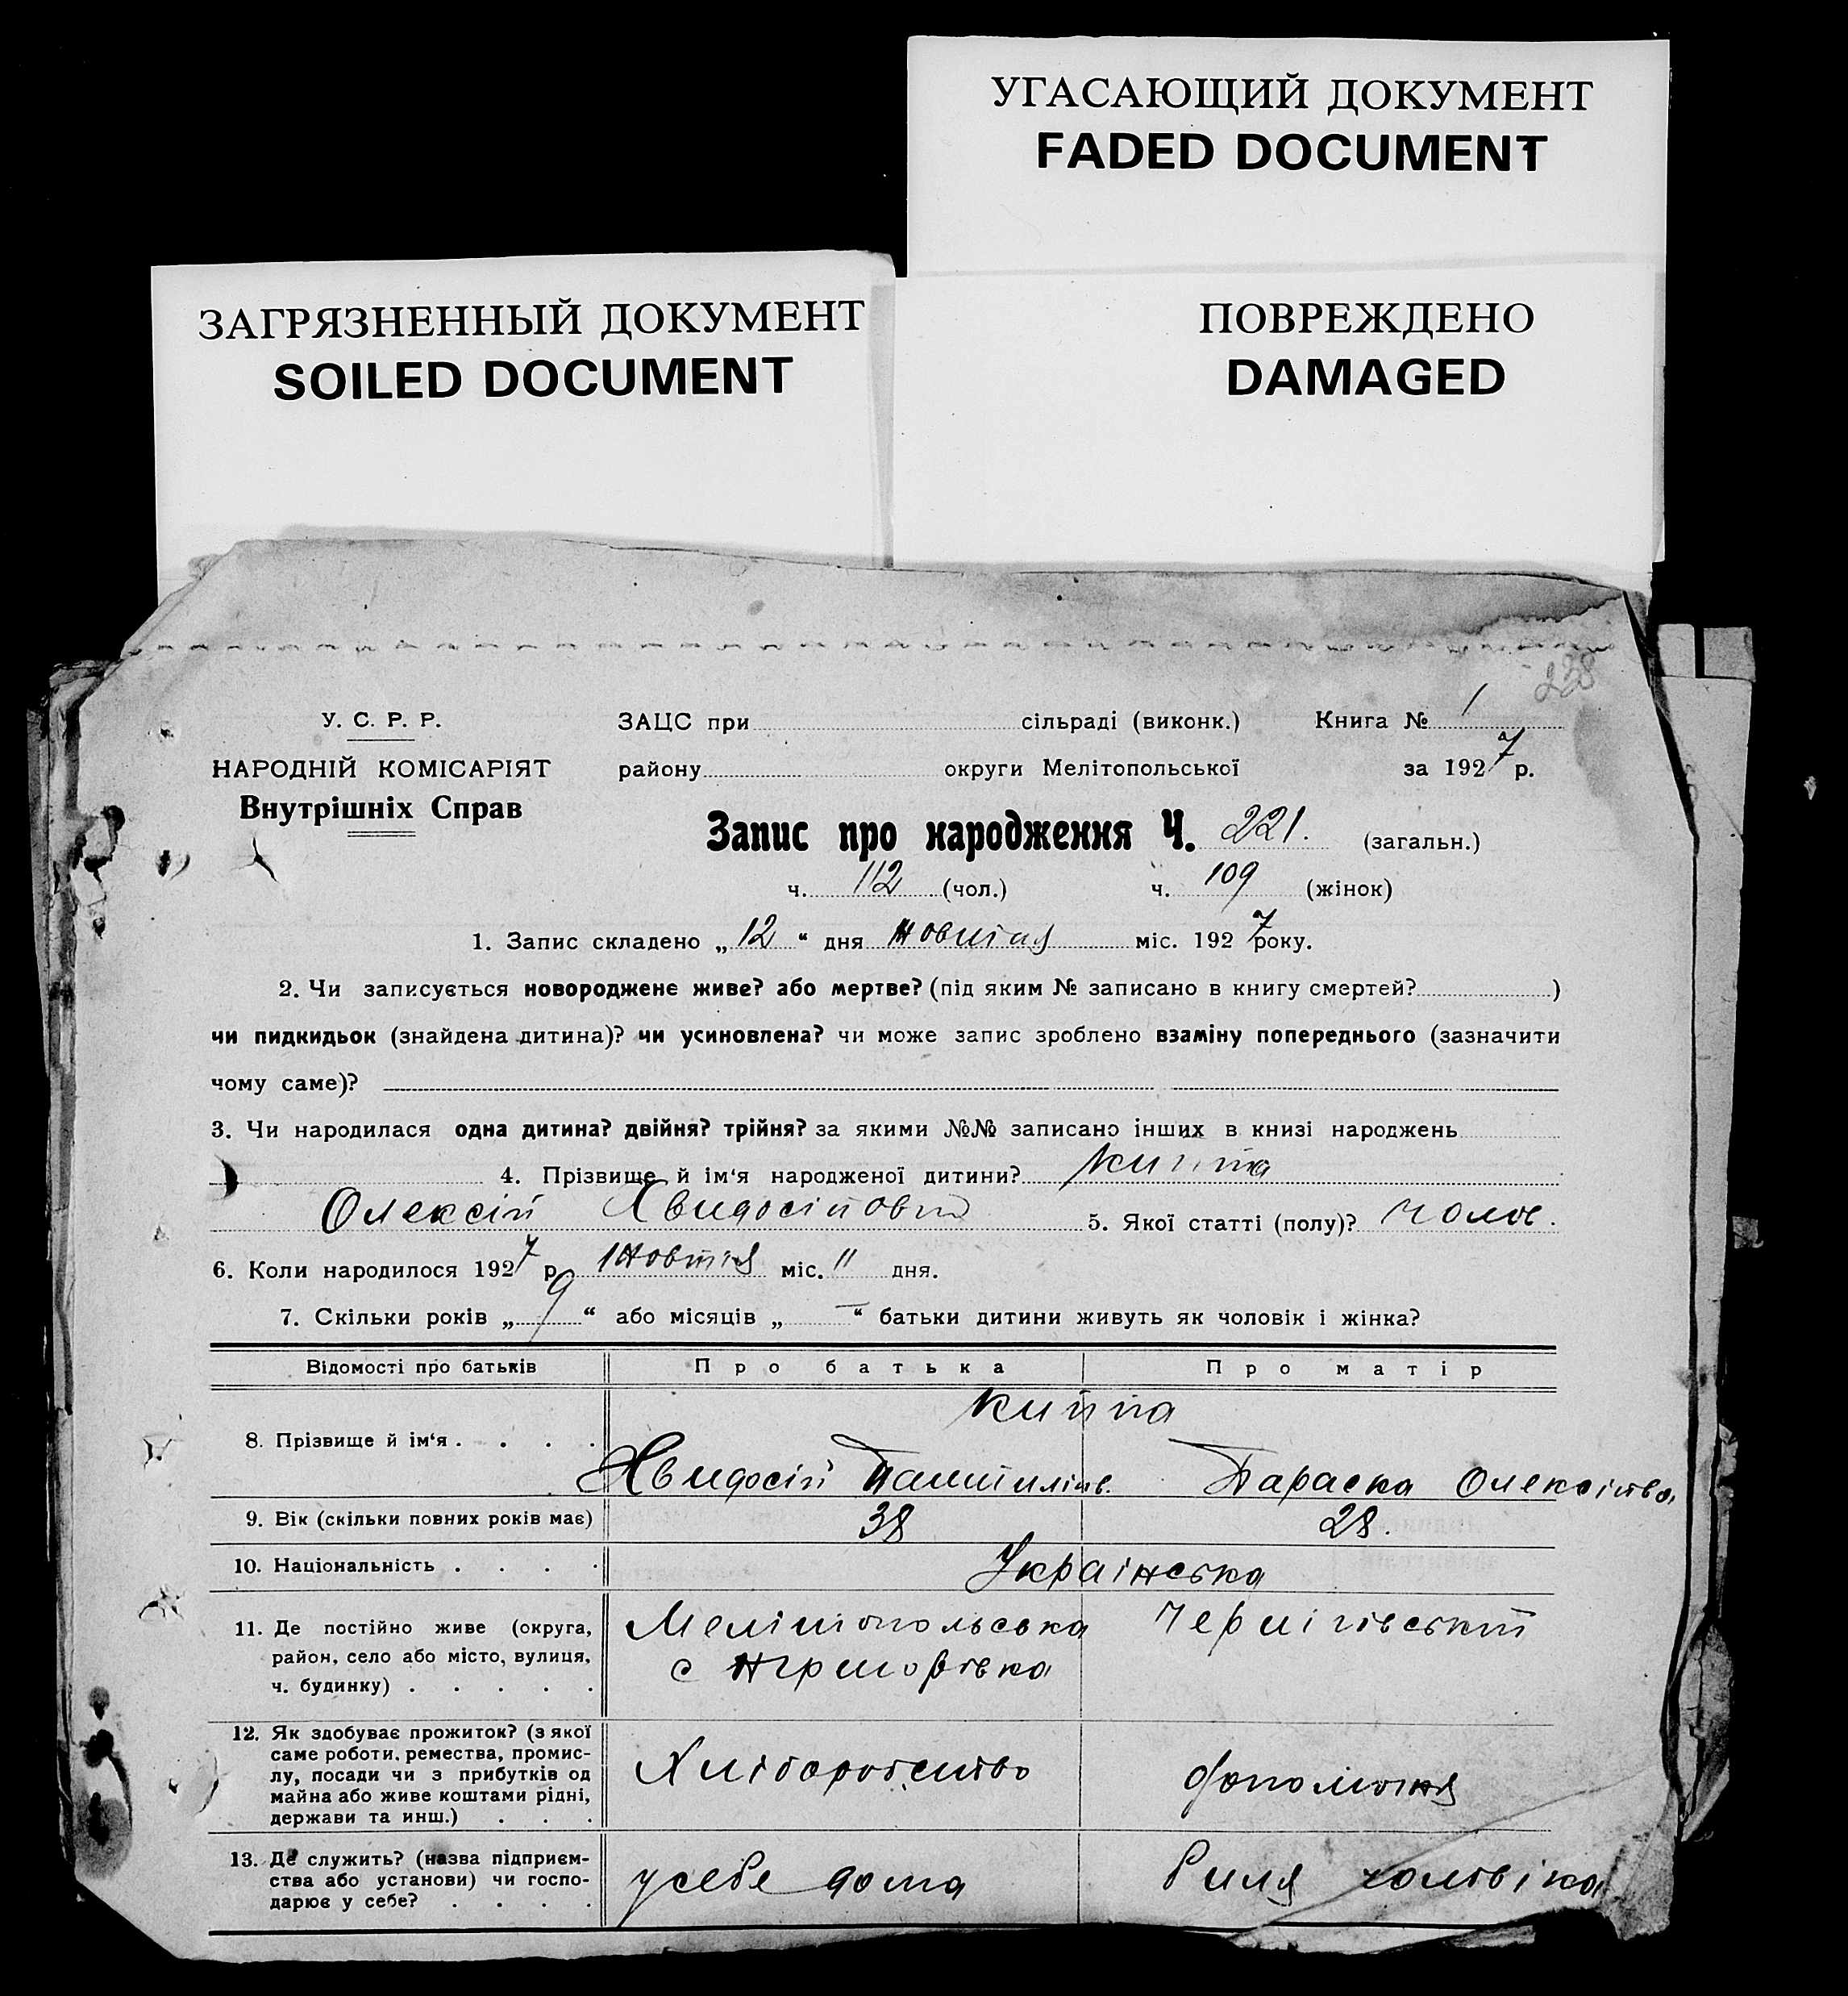 УГАСАЮЩИЙ ДОКУМЕНТ
FADED DOCUMENT
ЗАГРЯЗНЕННЫЙ ДОКУМЕНТ
SOILED DOCUMENT
ПОВРЕЖДЕНО
DAMAGED
228
У. С. Р. Р.
НАРОДНІЙ КОМІСАРІЯТ
Внутрішніх Справ
ЗАЦС при сільраді (виконк.) Книга № 1
району округи Мелітопольської за 1927 р.
Запис про народження Ч. 221. (загальн.)
ч. 112 (чол.) ч. 109 (жінок)
1. Запис складено „12“ дня жовтня міс. 1927 року.
2. Чи записується новороджене живе? або мертве? (під яким № записано в книгу смертей? )
чи пидкидьок (знайдена дитина)? чи усиновлена? чи може запис зроблено взаміну попереднього (зазначити
чому саме)?
3. Чи народилася одна дитина? двійня? трійня? за якими №№ записано інших в книзі народжень
4. Прізвище й ім‘я народженої дитини?
Олексій Хвидосійович 5. Якої статті (полу)? чолов.
6. Коли народилося 1927 р. жовтня міс. 11 дня.
7. Скільки років „9“ або місяців „—“ батьки дитини живуть як чоловік і жінка?
Відомості про батьків Про батька Про матір
8. Прізвище й ім‘я . . . .
Хвидосій Параска Олексіївна
9. Вік (скільки повних років має) 38 28.
10. Національність . . . . Українська
11. Де постійно живе (округа, район, село або місто, вулиця, ч. будинку) . . . . .
Мелітопольська Чернігівський
с
12. Як здобуває прожиток? (з якої саме роботи, ремества, промислу, посади чи з прибутків од майна або живе коштами рідні, держави та инш.) . . .
Хліборобство допомогня
13. Де служить? (назва підприємства або установи) чи господарює у себе? . . . .
у себе дома биля чоловіка